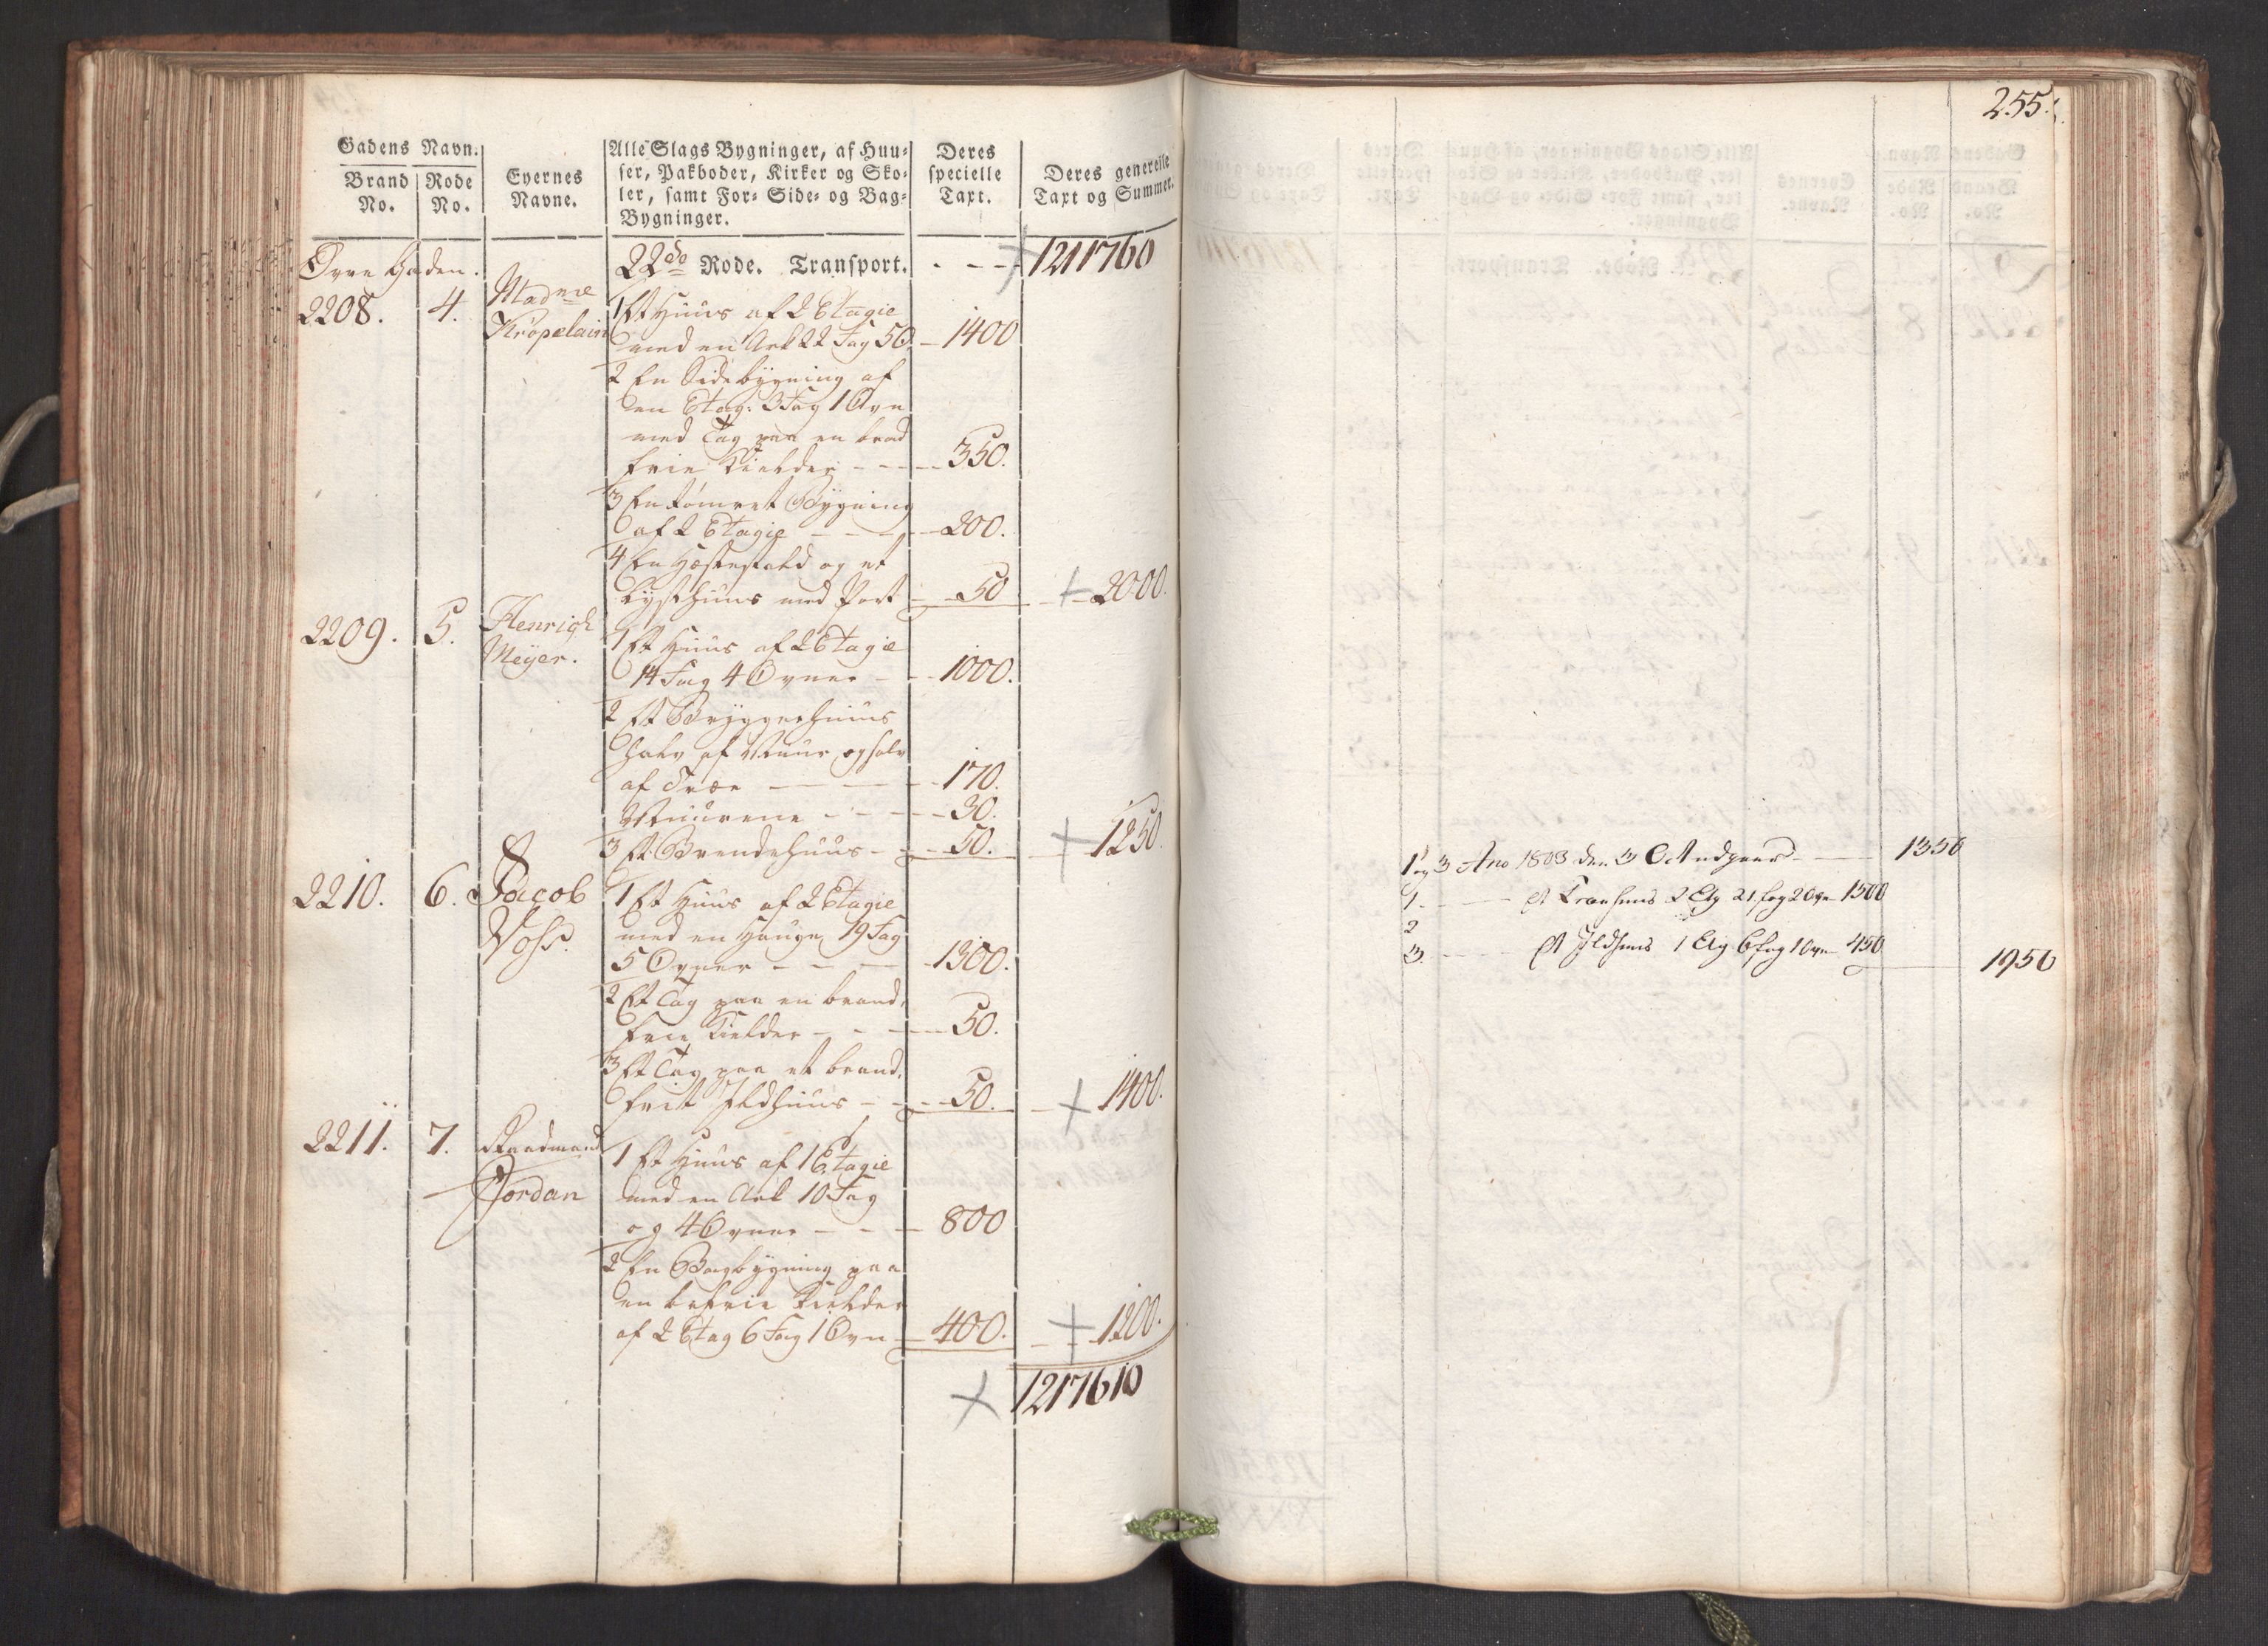 255.
Gadens Navn.
Brand No.
Rode No.
Eyernes Navne.
Alle Slags Bygninger, af Huu-
ser, Pakboder, Kirker og Sko-
ler, samt For- Side- og Bag-
Bygninger.
Deres specielle Taxt.
Deres generelle Taxt og Summer.
Øvre Gaden. 22de Rode. Transport. - - - 1211760
2208. 4. Madme Kröpelain
1 Et Huus af 2 Etagie
med en Ark 22 Fag 5 O. - 1400
2 En Sidebÿgning af
en Etag: 3 Fag 1 Ovn
med Tag paa en brand
frie Kielder - - - 350.
3 En tømret Bÿgning
af 2 Etagie - - - 200.
4 En Hæstestald og et
Lysthuus med Port - 50 - 2000.
2209. 5. Henrich Meÿer.
1 Et Huus af 2 Etagie
14 Fag 4 Ovner - - 1000.
2 Et Brÿggerhuus
halv af Muur og halv
af Træe - - - 170.
Muurene - - - 30.
3 Et Brendehuus - - 50. - 1250.
2210. 6. Jacob Voss.
1 Et Huus af 2 Etagie
med en Hauge 19 Fag
5 Ovner - - - 1300.
2 Et Tag paa en brand-
frie Kielder - - - 50.
3 Et Tag paa et brand-
frit Ildhuus - - - 50. - 1400.
2211. 7. Raadmand Jordan
1 Et Huus af 1 Etagie
med en Ark 10 Fag
og 4 Ovner - - - 800
2 En Bagbÿgning paa
en befrie Kielder
af 2 Etag 6 Fag 1 Ovn - 400. - 1200.
1217610
1 og 3 Ano 1803 den 3 Oct udgaaer - - 1350
1. - - Et Træehuus 2 Etg 21 fag 2 Ovn 1500
2
3. - - Et Ildhuus 1 Etg 6 fag 1 Ovn 450
1950